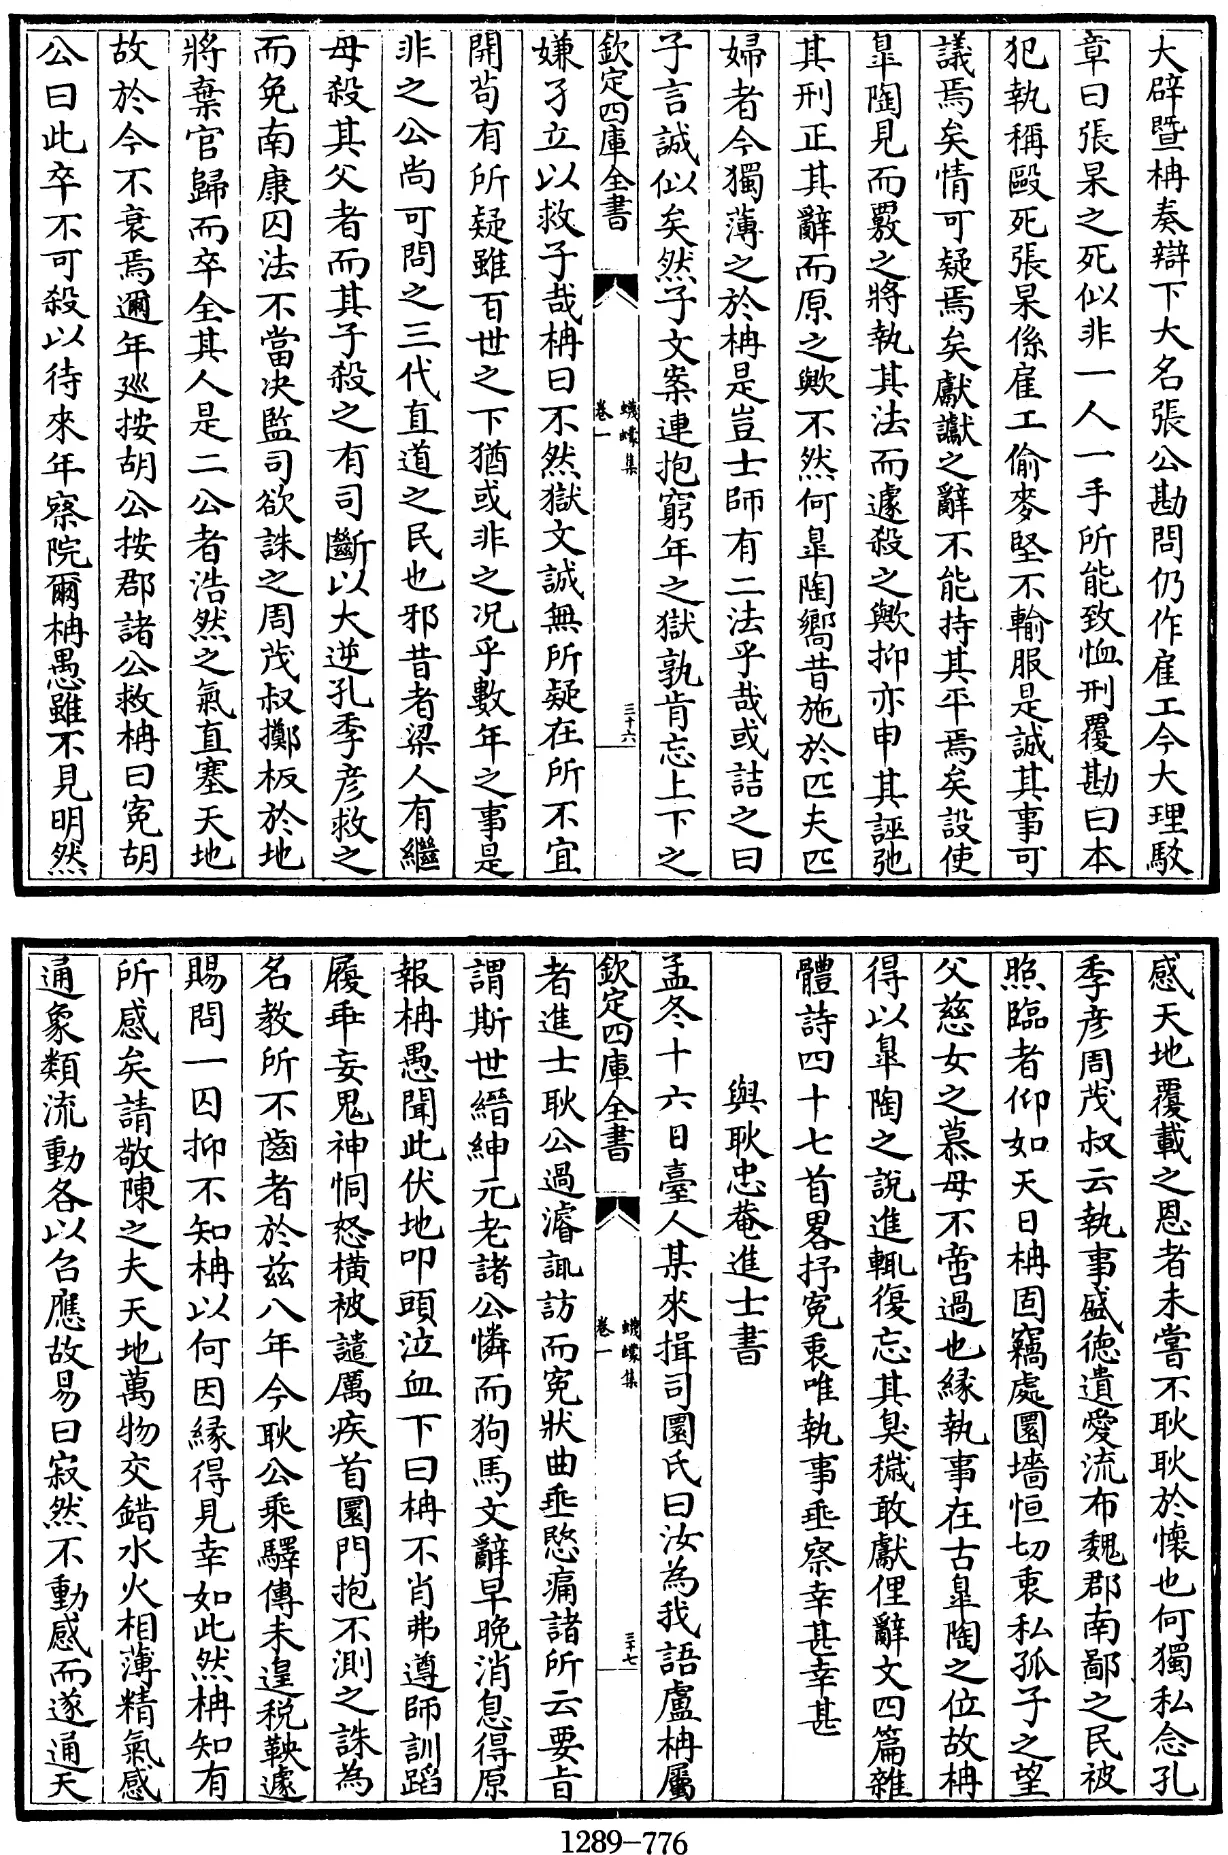 大辟暨柟奏辯下大名張公勘問仍作雇工今大理駁
章曰張杲之死似非一人一手所能致恤刑覆勘曰本
犯執稱毆死張杲係雇工偷麥堅不輸服是誠其事可
議焉矣情可疑焉矣獻讞之辭不能持其平焉矣設使
臯陶見而覈之將執其法而遽殺之歟抑亦申其誣弛
其刑正其辭而原之歟不然何臯陶嚮昔施於匹夫匹
婦者今獨薄之於柟是豈士師有二法乎哉或詰之曰
子言誠似矣然子文案連抱窮年之獄孰肯忘上下之
欽定四庫全書
蠛蠓集
卷一
三十六
嫌孑立以救子哉柟曰不然獄文誠無所疑在所不宜
開茍有所疑雖百世之下猶或非之况乎數年之事是
非之公尚可問之三代直道之民也邪昔者梁人有繼
母殺其父者而其子殺之有司斷以大逆孔季彦救之
而免南康囚法不當决監司欲誅之周茂叔擲板於地
將棄官歸而卒全其人是二公者浩然之氣直塞天地
故於今不衰焉邇年廵按胡公按郡諸公救柟曰寃胡
公曰此卒不可殺以待來年察院爾柟愚雖不見明然
感天地覆載之恩者未嘗不耿耿於懷也何獨私念孔
季彦周茂叔云執事盛德遺愛流布魏郡南鄙之民被
照臨者仰如天日柟固竊處圜墻恒切衷私孤子之望
父慈女之慕母不啻過也緣執事在古臯陶之位故柟
得以臯陶之說進輒復忘其臭穢敢獻俚辭文四篇雜
體詩四十七首畧抒寃衷唯執事垂察幸甚幸甚
與耿忠菴進士書
孟冬十六日臺人某來揖司圜氏曰汝為我語盧柟屬
欽定四庫全書
蠛蠓集
卷一
三十七
者進士耿公過濬諏訪而寃狀曲垂愍痛諸所云要㫖
謂斯世縉紳元老諸公憐而狗馬文辭早晩消息得原
報柟愚聞此伏地叩頭泣血下曰柟不肖弗遵師訓蹈
履乖妄鬼神恫怒橫被譴厲疾首圜門抱不測之誅為
名教所不齒者於兹八年今耿公乘驛傳未遑稅鞅遽
賜問一囚抑不知柟以何因緣得見幸如此然柟知有
所感矣請敬陳之夫天地萬物交錯水火相薄精氣感
通象類流動各以召應故易曰寂然不動感而遂通天
1289-776